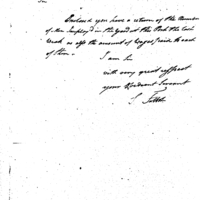 Sir
Enclosed you have a return of the Number
of Men Employ'd in the Yard at this Port the last
Week as also the amount of Wages paid to each
of them.
I am Sir
with very great respect
your Obedient Servant